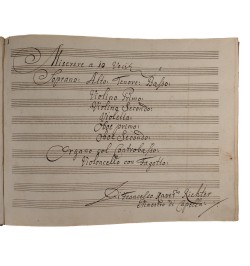 Miserere a 10 Voci
Soprano: Alto: Tenore: Basso:
Violino Primo:
Violino Secondo:
Violetta:
Oboe primo:
Oboe Secondo:
Organo col Contrabasso:
Violoncello con Fagotto:
Di Francesco Richter
Maestro di Capella